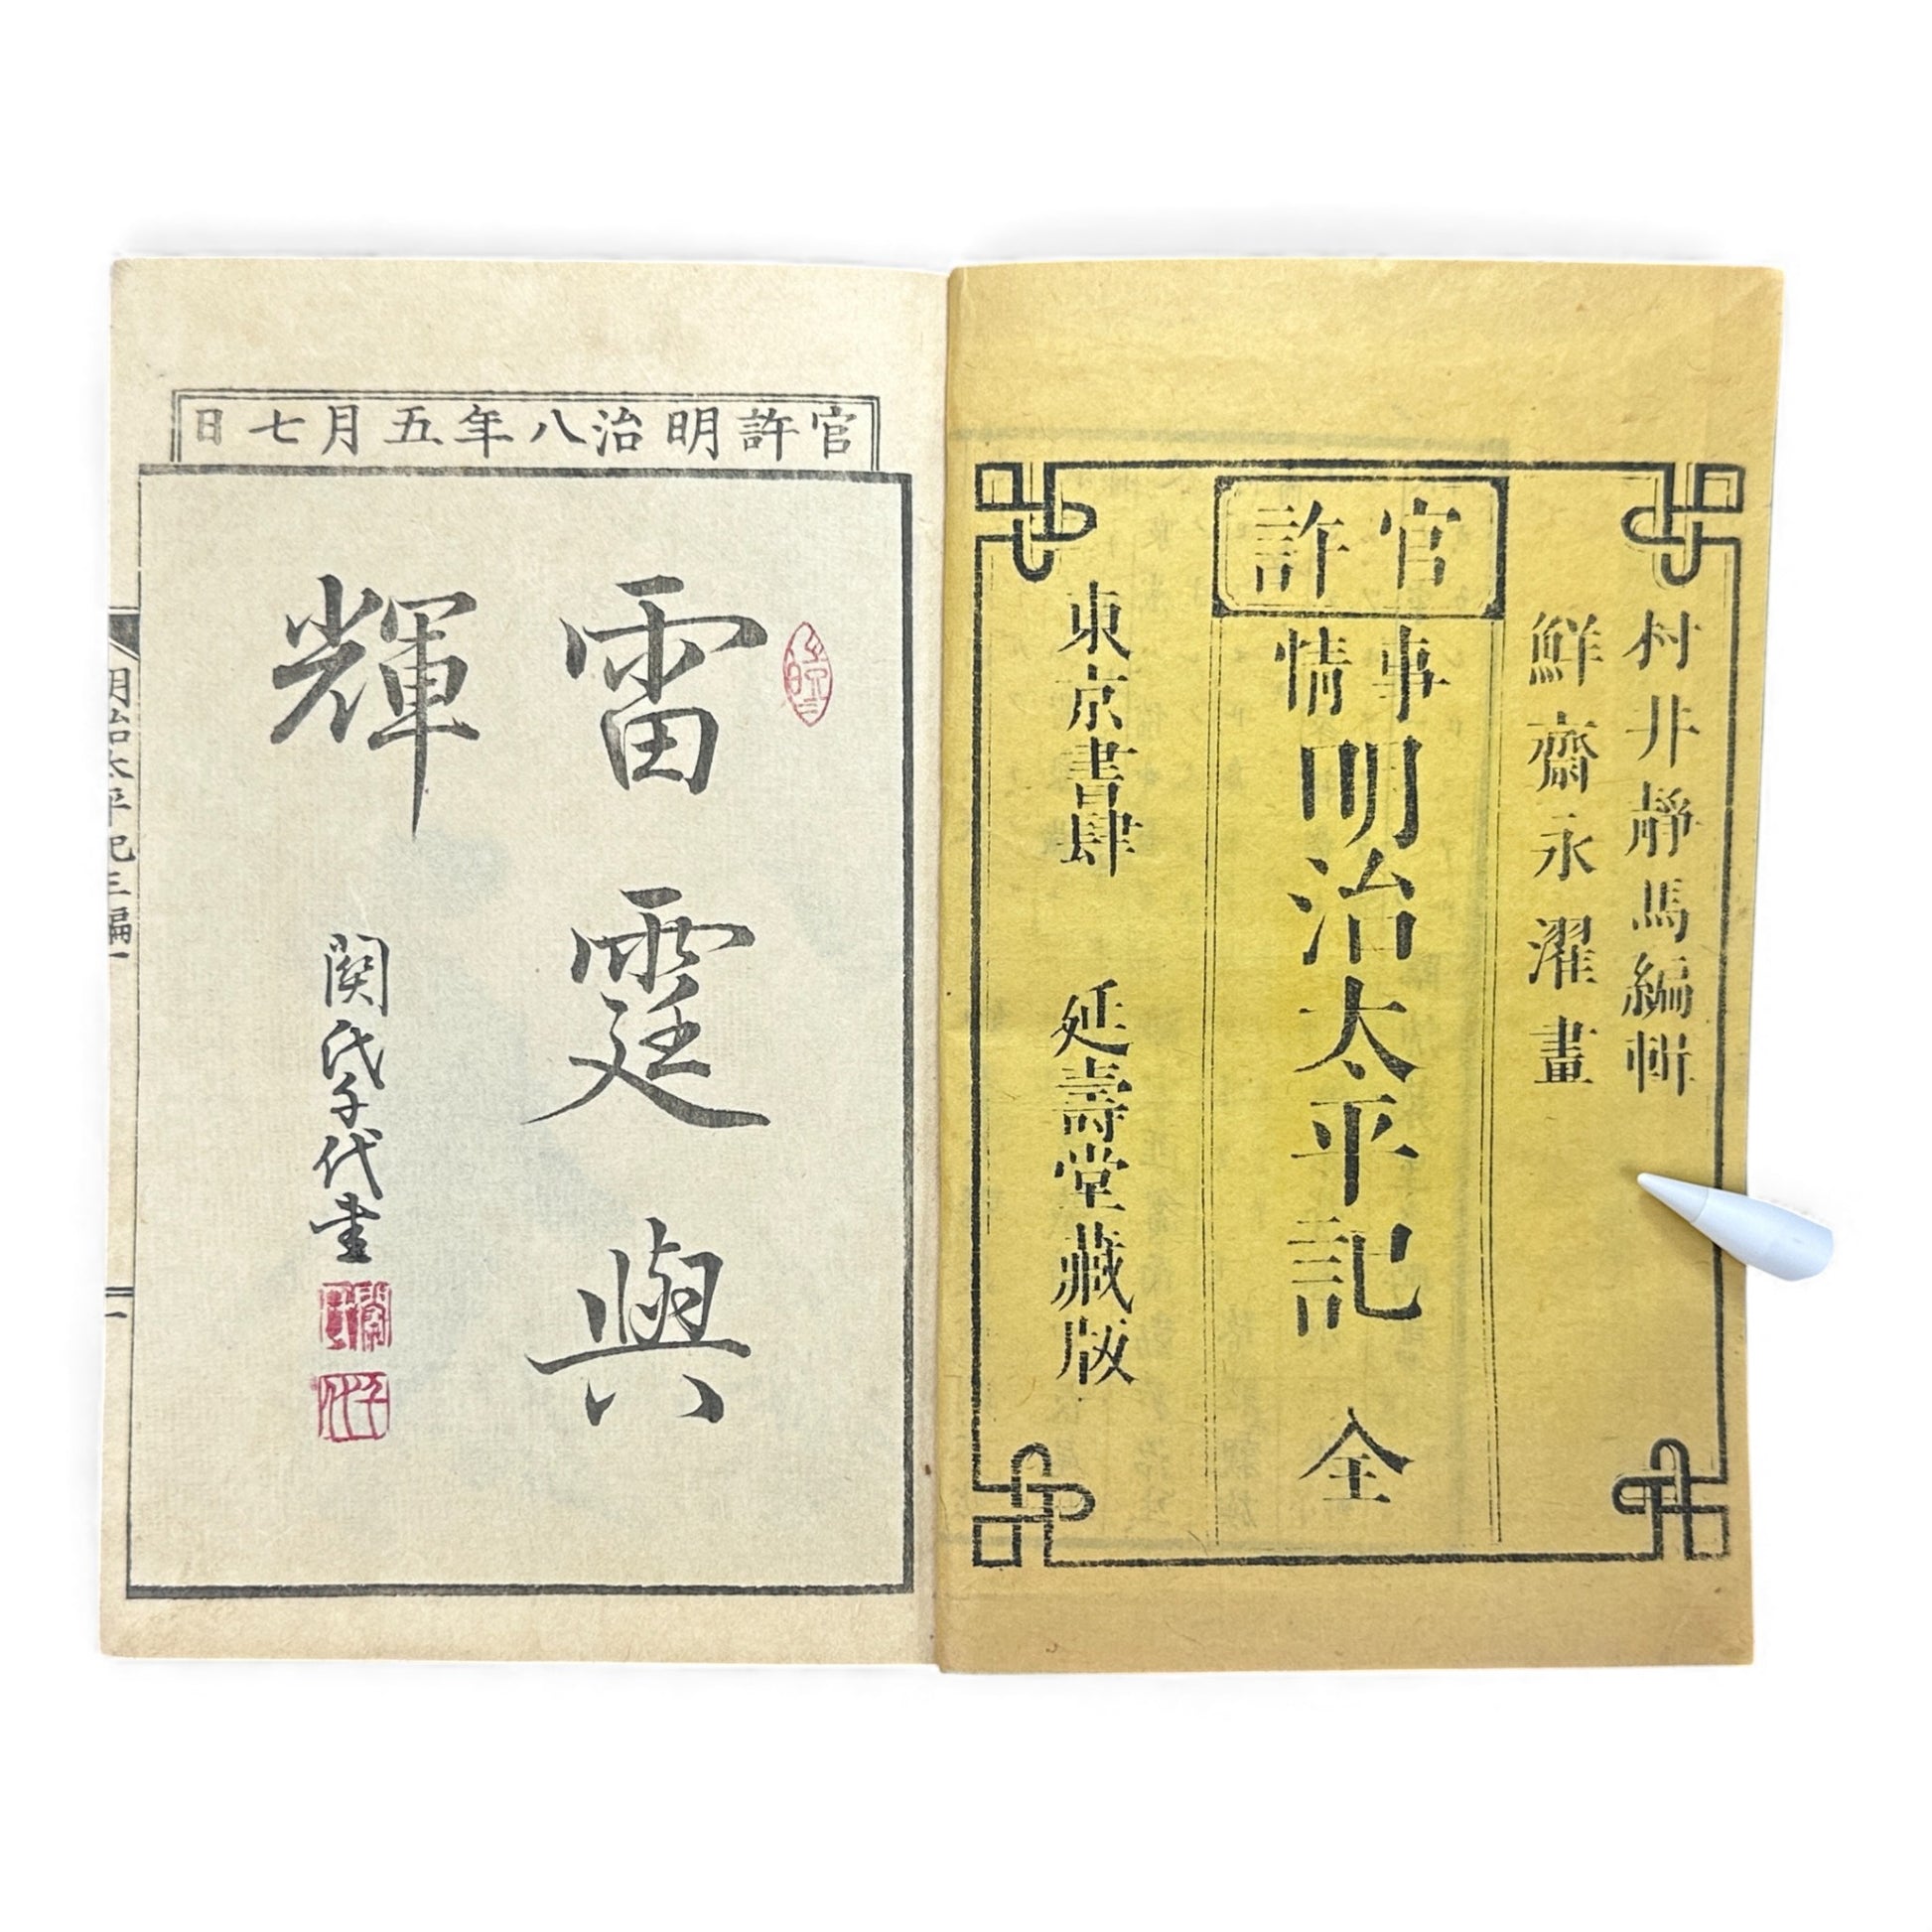 村井靜馬編輯
鮮齋永濯畫
官許
事情
明治太平記 全
東京書肆 延壽堂藏版
官許明治八年五月七日
雷霆與
輝
関氏千代書
明治太平記三編一
一